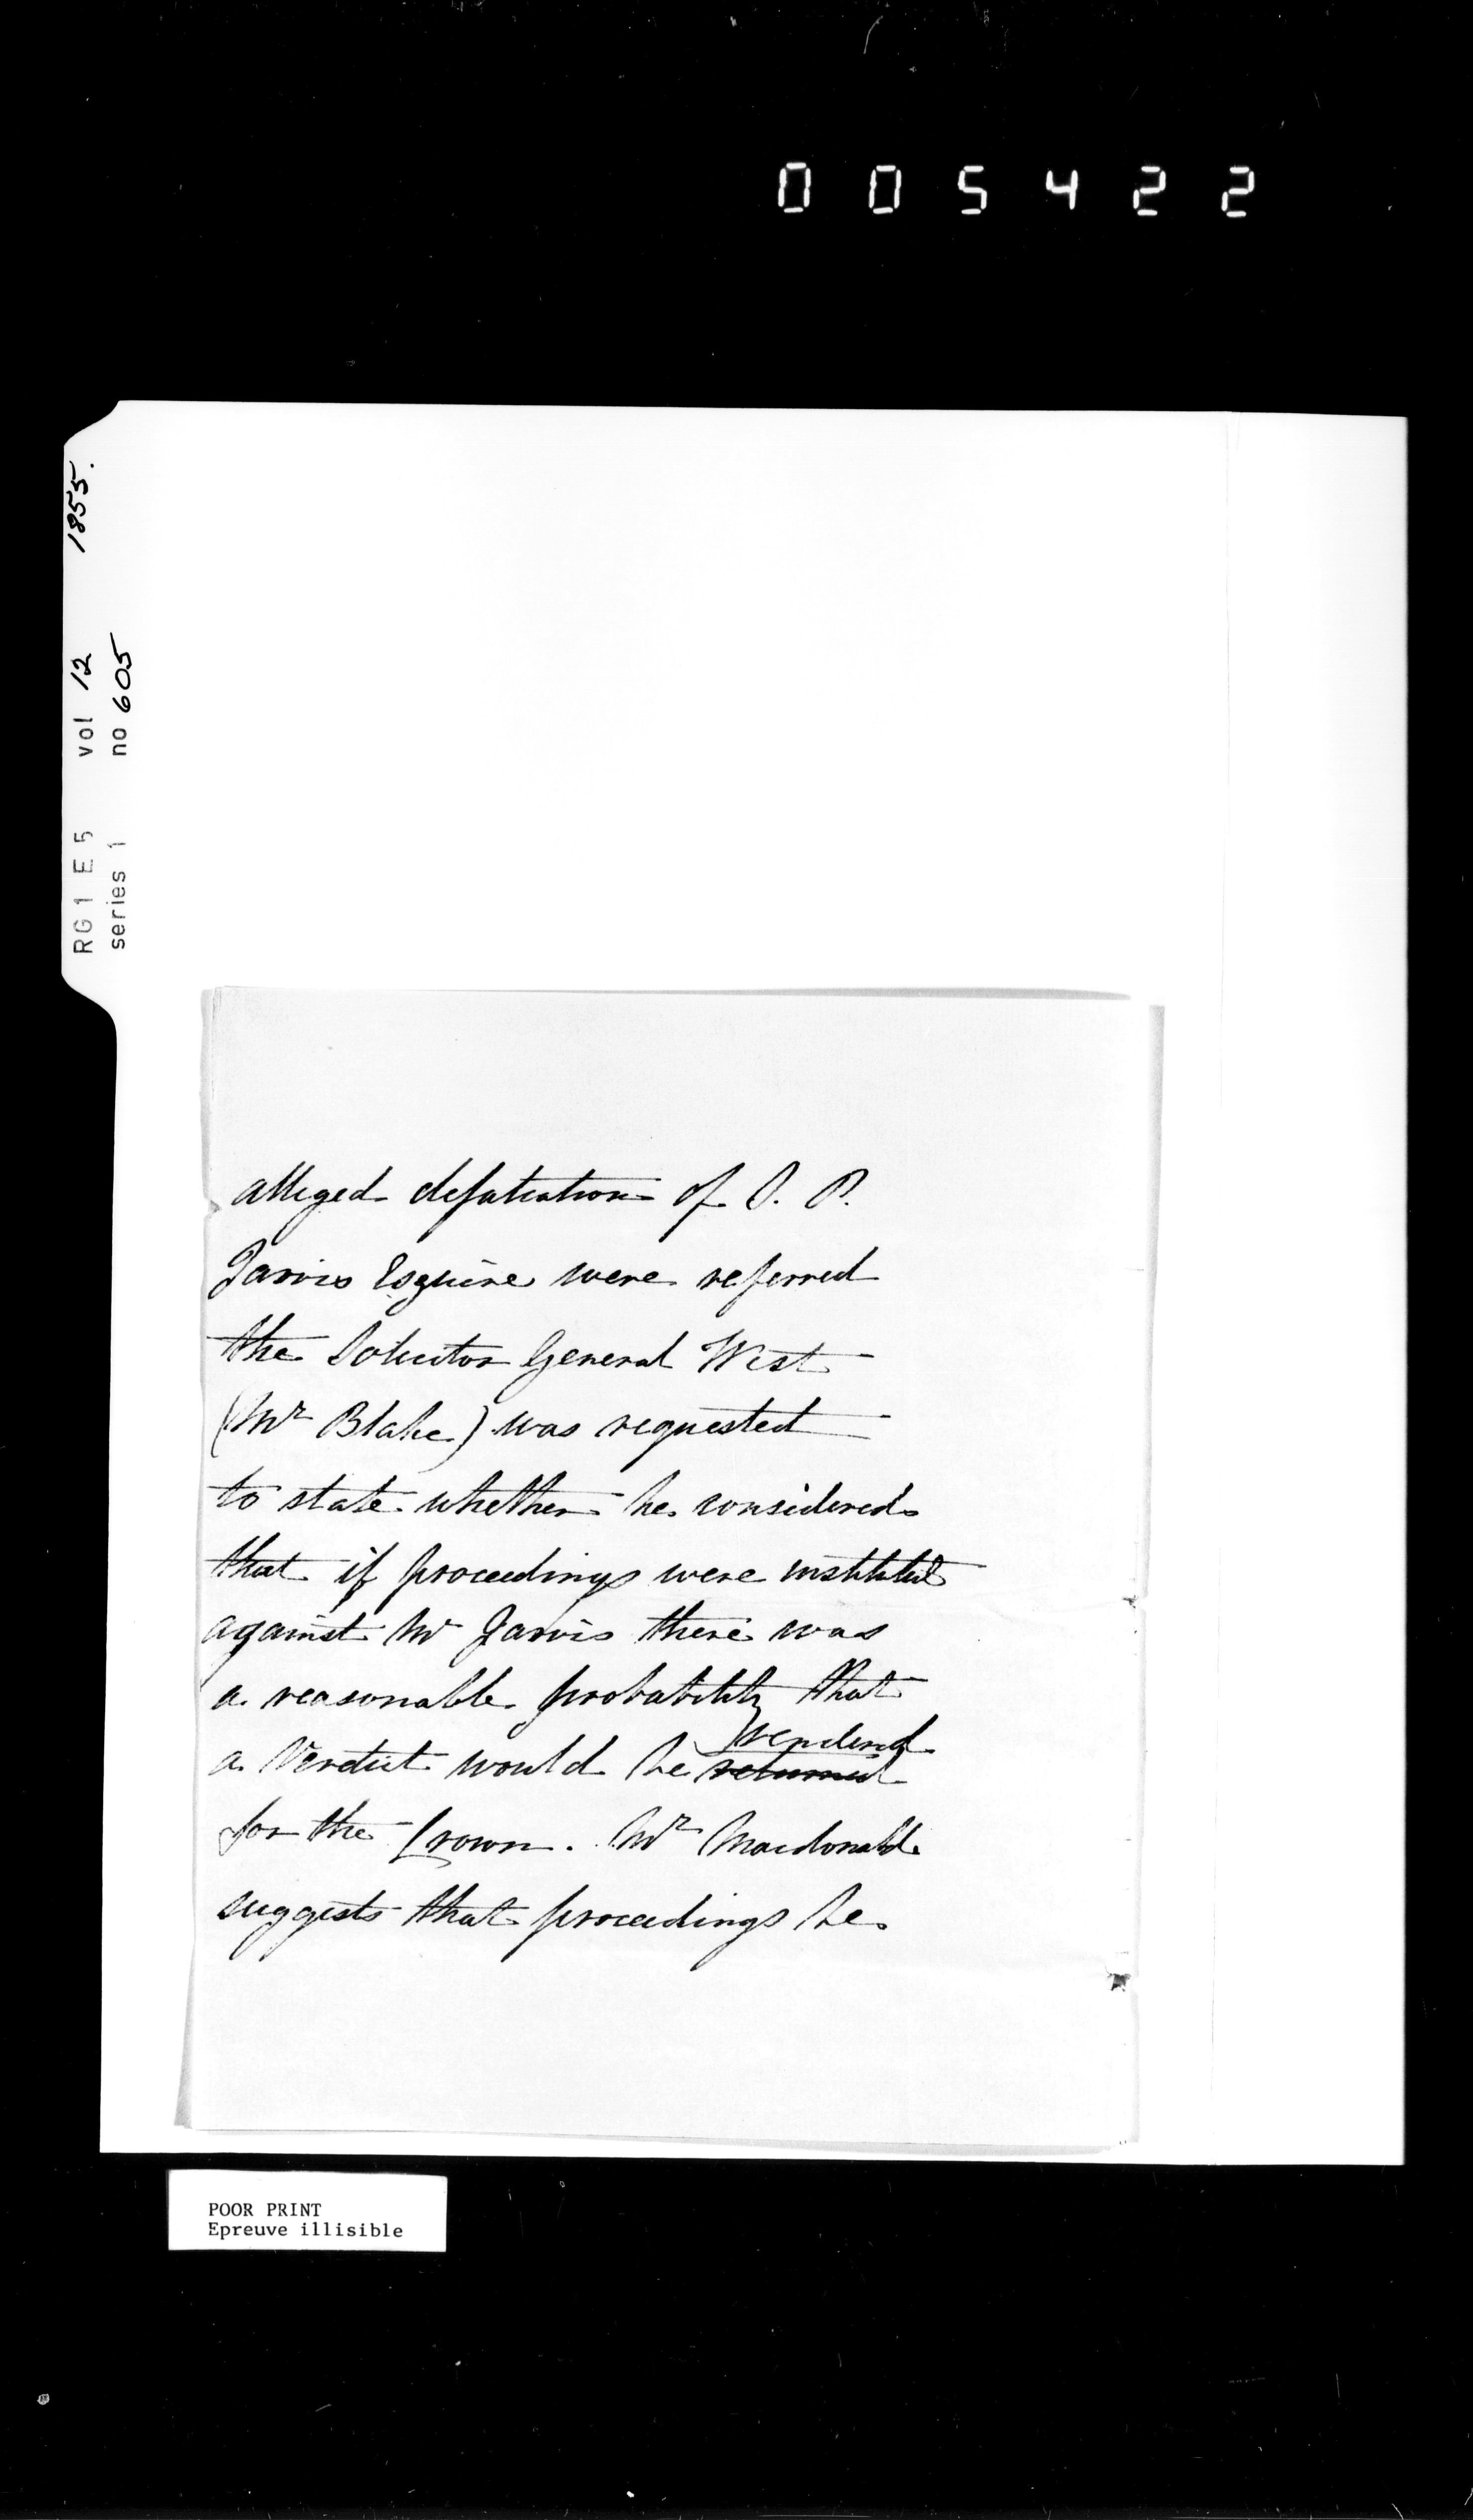 005422
1855.
RG1 E5 vol 12
series 1 no 605
alleged defalcation of S. P.
Jarvis Esquire were referred
the Solicitor General West
(Mr Blake) was requested
to state whether he considered
that if proceedings were instituted
against Mr Jarvis there was
a reasonable probability that
rendered
a Verdict would be returned
for the Crown. Mr Macdonald
suggests that proceedings be
POOR PRINT
Epreuve illisible